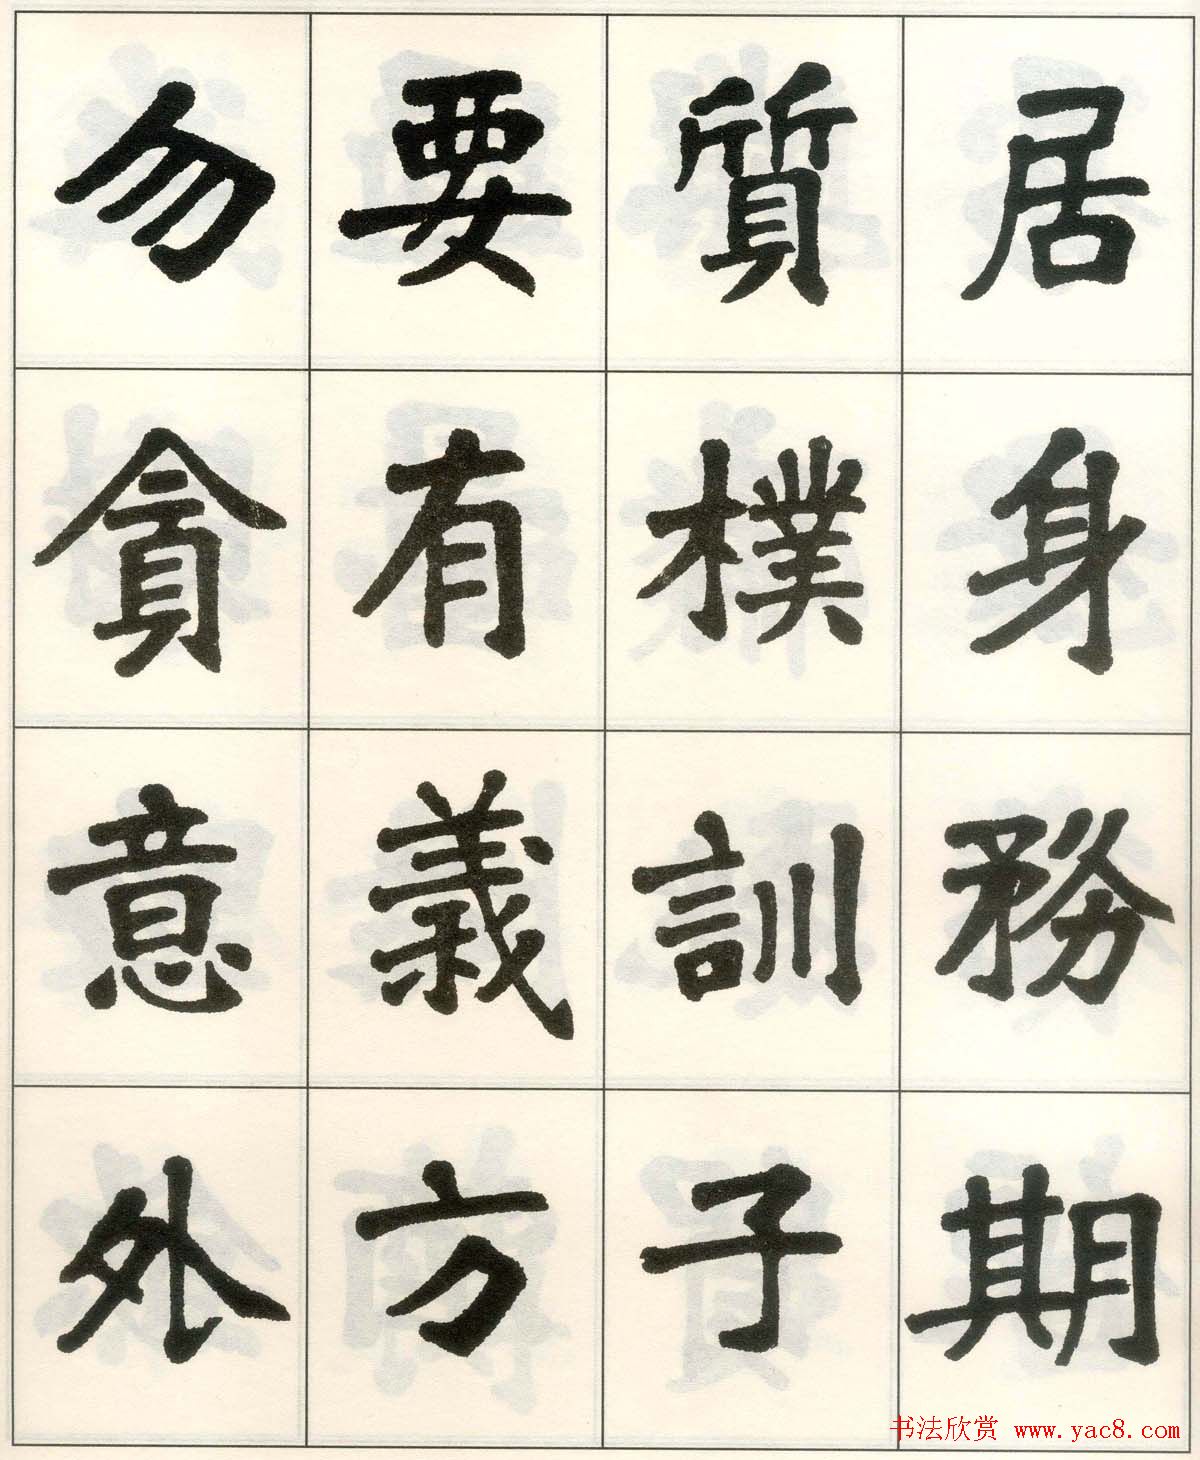 居身務期
質樸訓子
要有義方
勿貪意外
书法欣赏 www.yac8.com